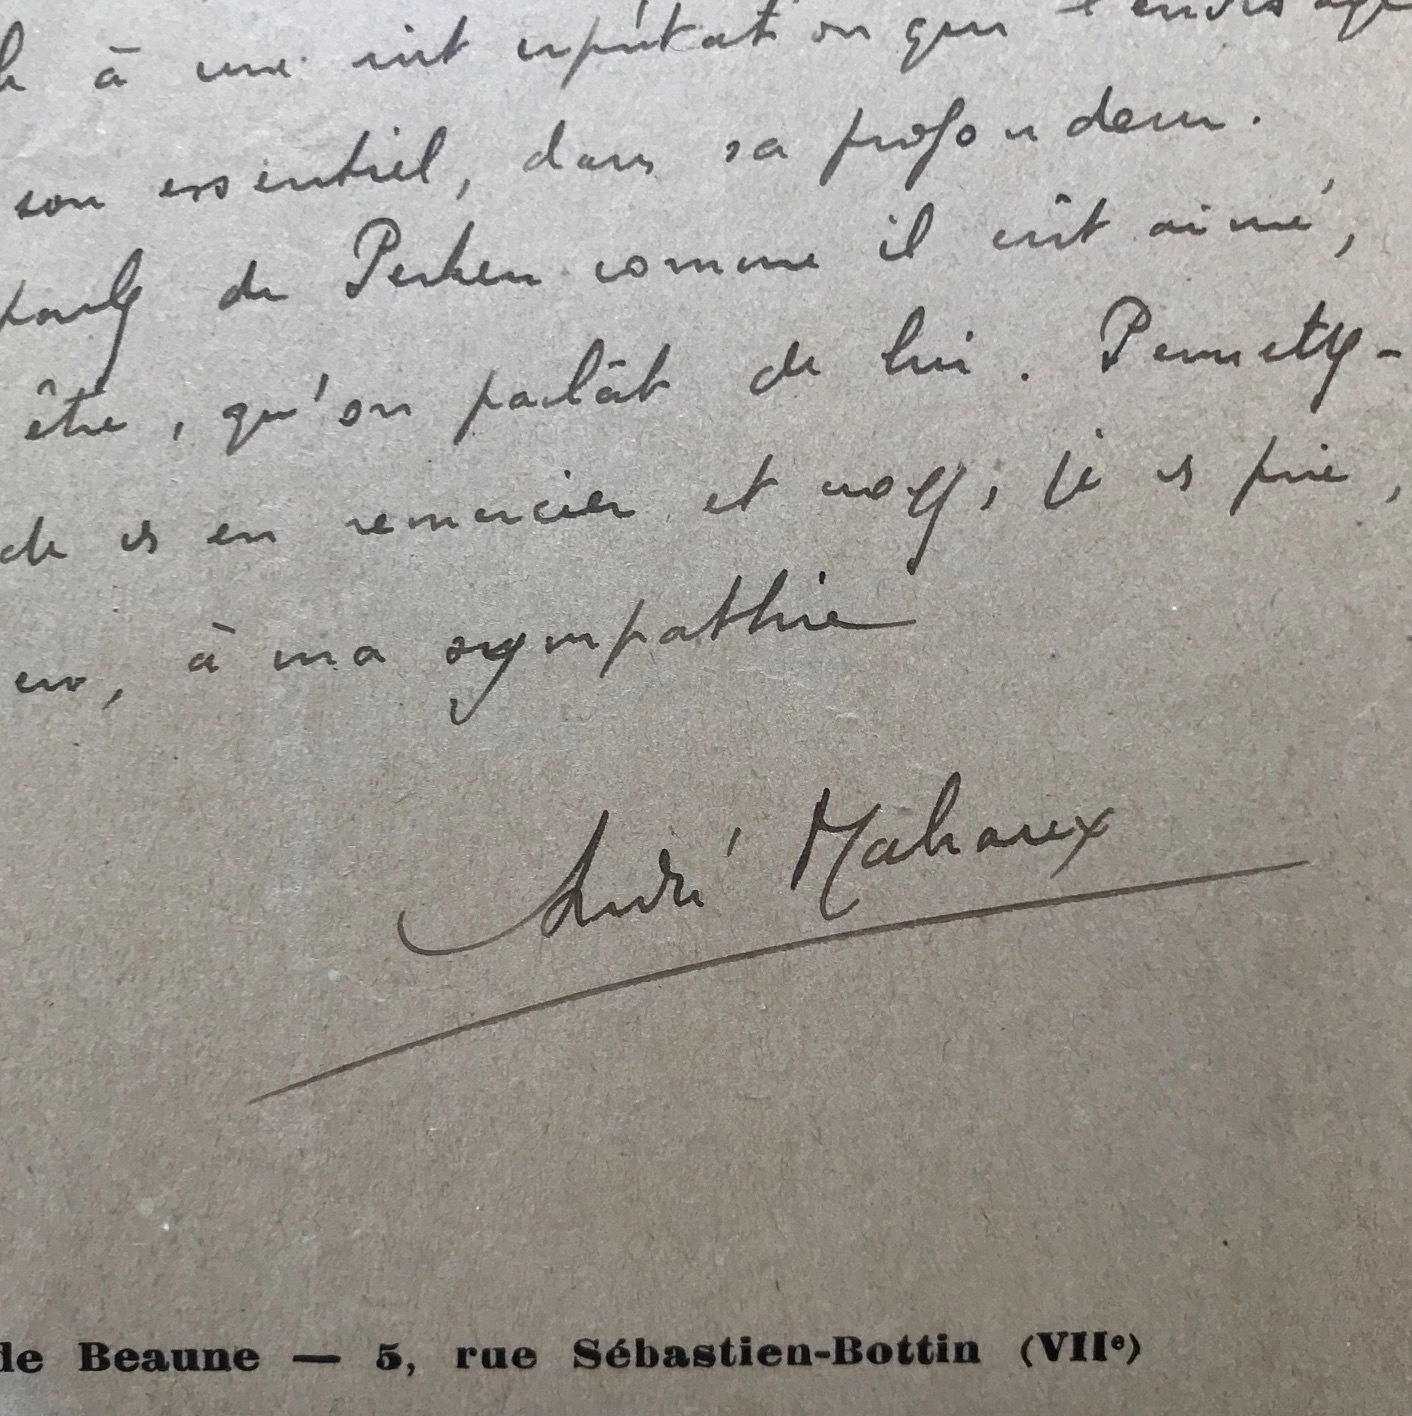 à une interprétation qui l'envisage
son essentiel, dans sa profondeur.
parlez de Perken comme il eût aimé,
être, qu'on parlât de lui. Permettez-
de vs en remercier et croyez, je vs prie,
à ma sympathie
André Malraux
de Beaune — 5, rue Sébastien-Bottin (VIIe)